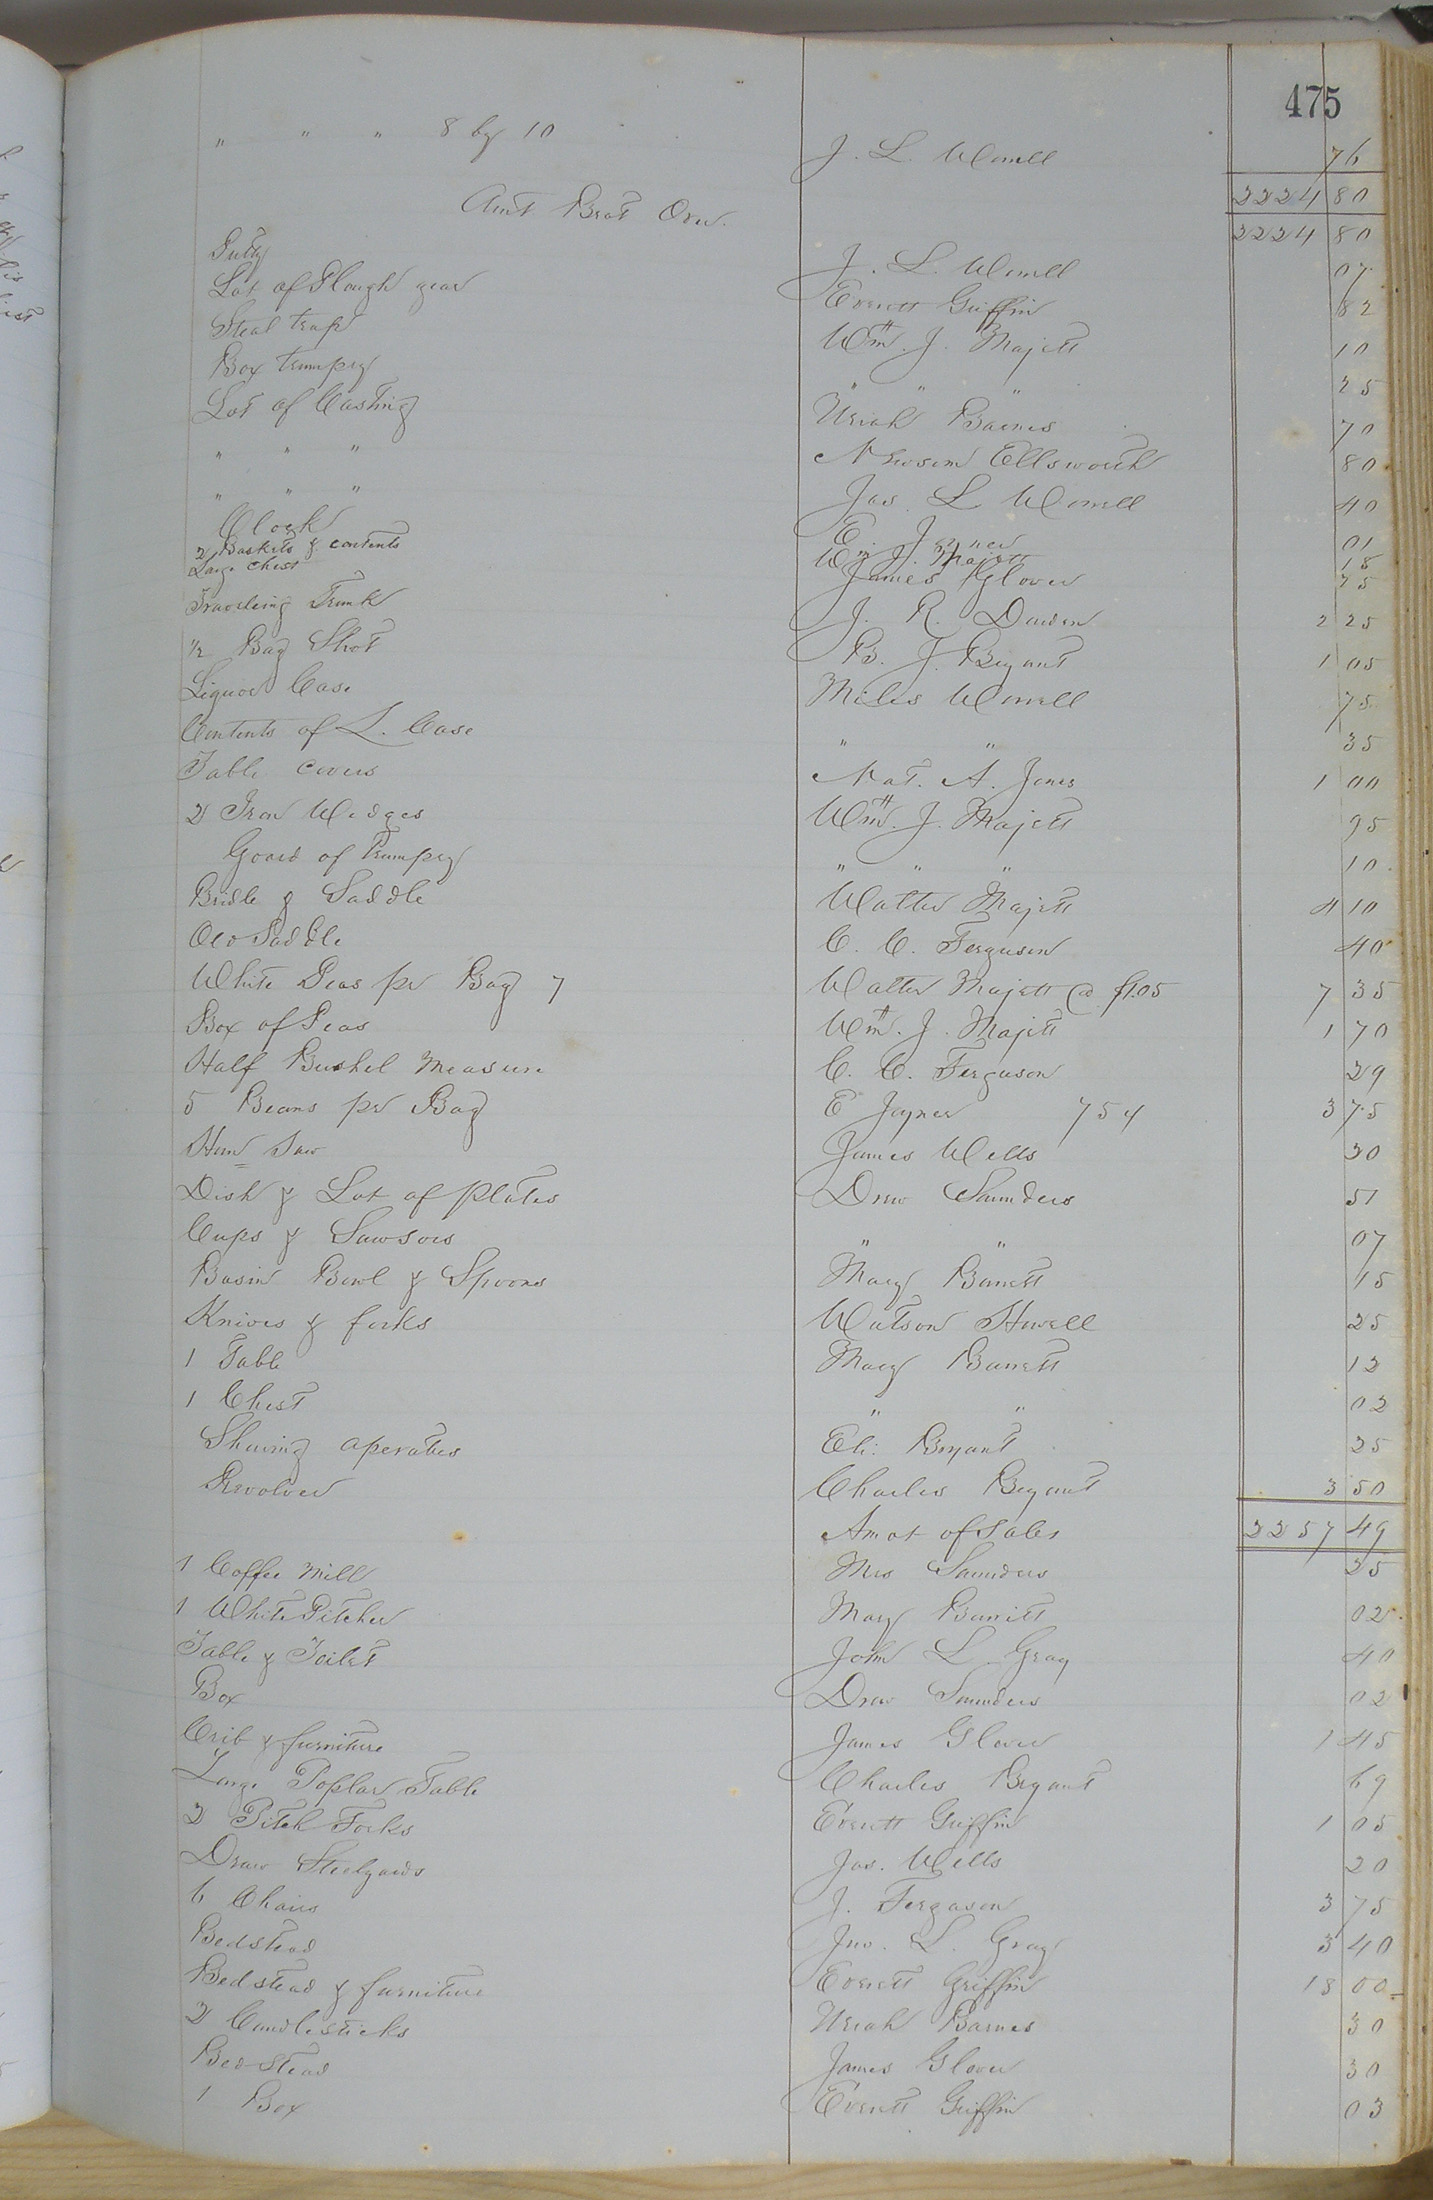 475
" " " 8 by 10 J. L. Worrell 76
2224 80
Amt Brot Over. 2224 80
Putty J. L. Worrell 07
Lot of Plough gear Everett Griffin 82
Steal trap Wm. J. Majett 10
Box trumpry " " " 25
Lot of Casting Uriah Barnes 70
" " " Newsom Ellsworth 80
" " " Jas. L Worrell 40
Clock E. Joyner 01
2 Baskets & contents Wm J. Majett 18
Large Chest James Glover 75
Travsleing Trunk J. R. Darden 2 25
1/2 Bag Shot B. J. Bryant 1 05
Liquor Case Miles Worrell 75
Contents of L. Case " " 35
Table covers Nat. A. Jones 1 00
2 Iron Wedges Wm. J. Majett 95
Gourd of Trumpry " " " 10
Bridle & Saddle Walter Majett 4 10
Old Saddle C. C. Ferguson 40
White Peas pr Bag 7 Walter Majett @ $1.05 7 35
Box of Peas Wm. J. Majett 1 70
Half Bushel Measure C. C. Ferguson 29
5 Beans pr Bag E Joyner 75 ¢ 3 75
Han Saw James Wells 30
Dish & Lot of plates Drew Saunders 51
Cups & Sawsors " " 07
Basin Bowl & Spoons Mary Barrett 15
Knives & forks Watson Howell 25
1 Table Mary Barrett 12
1 Chest " " 02
Shaving aperatus Eli: Bryant 25
Revolver Charles Bryant 3 50
Amot of Sales 2257 49
1 Coffee Mill Mrs Saunders 25
1 White Pitcher Mary Barrett 02
Table & Toilet John L. Gray 40
Box Drew Saunders 02
Crib & furniture James Glover 1 45
Large Poplar Table Charles Bryant 69
2 Pitch Forks Everett Griffin 1 05
Draw Steelyards Jas. Wells 20
6 Chairs J. Fergason 3 75
Bedstead Jno. L. Gray 3 40
Bedstead & furniture Everett Griffin 18 00
2 Candlesticks Uriah Barnes 30
Bedstead James Glover 30
1 Box Everett Griffin 03